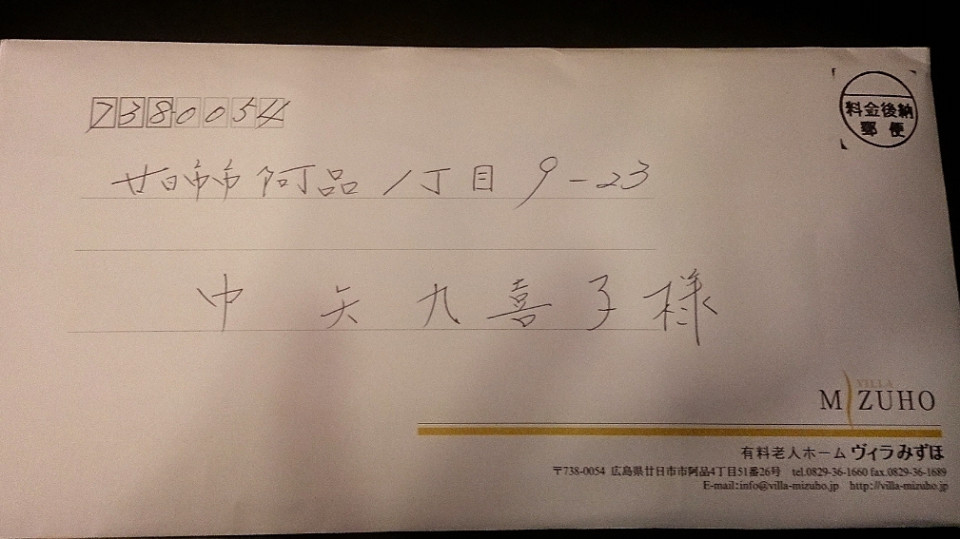 7380054
料金後納
郵便
廿日市市 阿品 1丁目 9-23
中矢九喜子様
VILLA
MIZUHO
有料老人ホーム ヴィラみずほ
〒738-0054 広島県廿日市市阿品4丁目51番26号 tel.0829-36-1660 fax.0829-36-1689
E-mail:info@villa-mizuho.jp http://villa-mizuho.jp